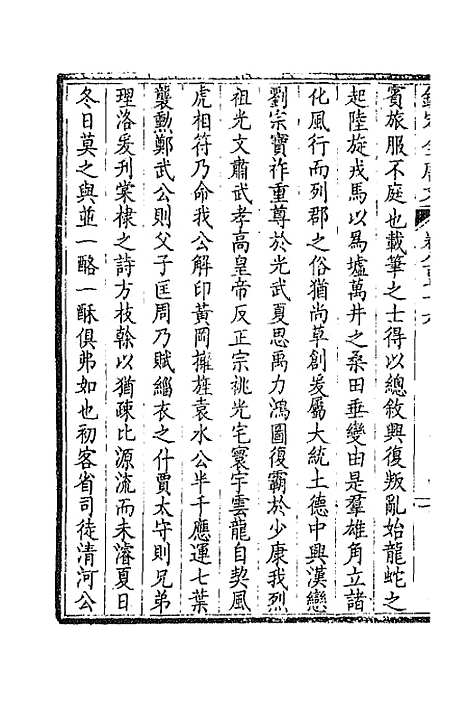 賓旅服不庭也載筆之士得以總敘興復叛亂始龍蛇之
起陸旋戎馬以爲墟萬井之桑田垂變由是羣雄角立諸
化風行而列郡之俗猶尚草創爰屬大統土德中興漢戀
劉宗寶祚重尊於光武夏思禹力鴻圖復霸於少康我烈
祖光文肅武孝高皇帝反正宗祧光宅寰宇雲龍自契風
虎相符乃命我公解印黃岡擁旌袁水公半千應運七葉
襲勲鄭武公則父子匡周乃賦緇衣之什賈太守則兄弟
理洛爰刋棠棣之詩方枝榦以猶疎比源流而未濬夏日
冬日莫之與並一酪一酥俱弗如也初客省司徒清河公